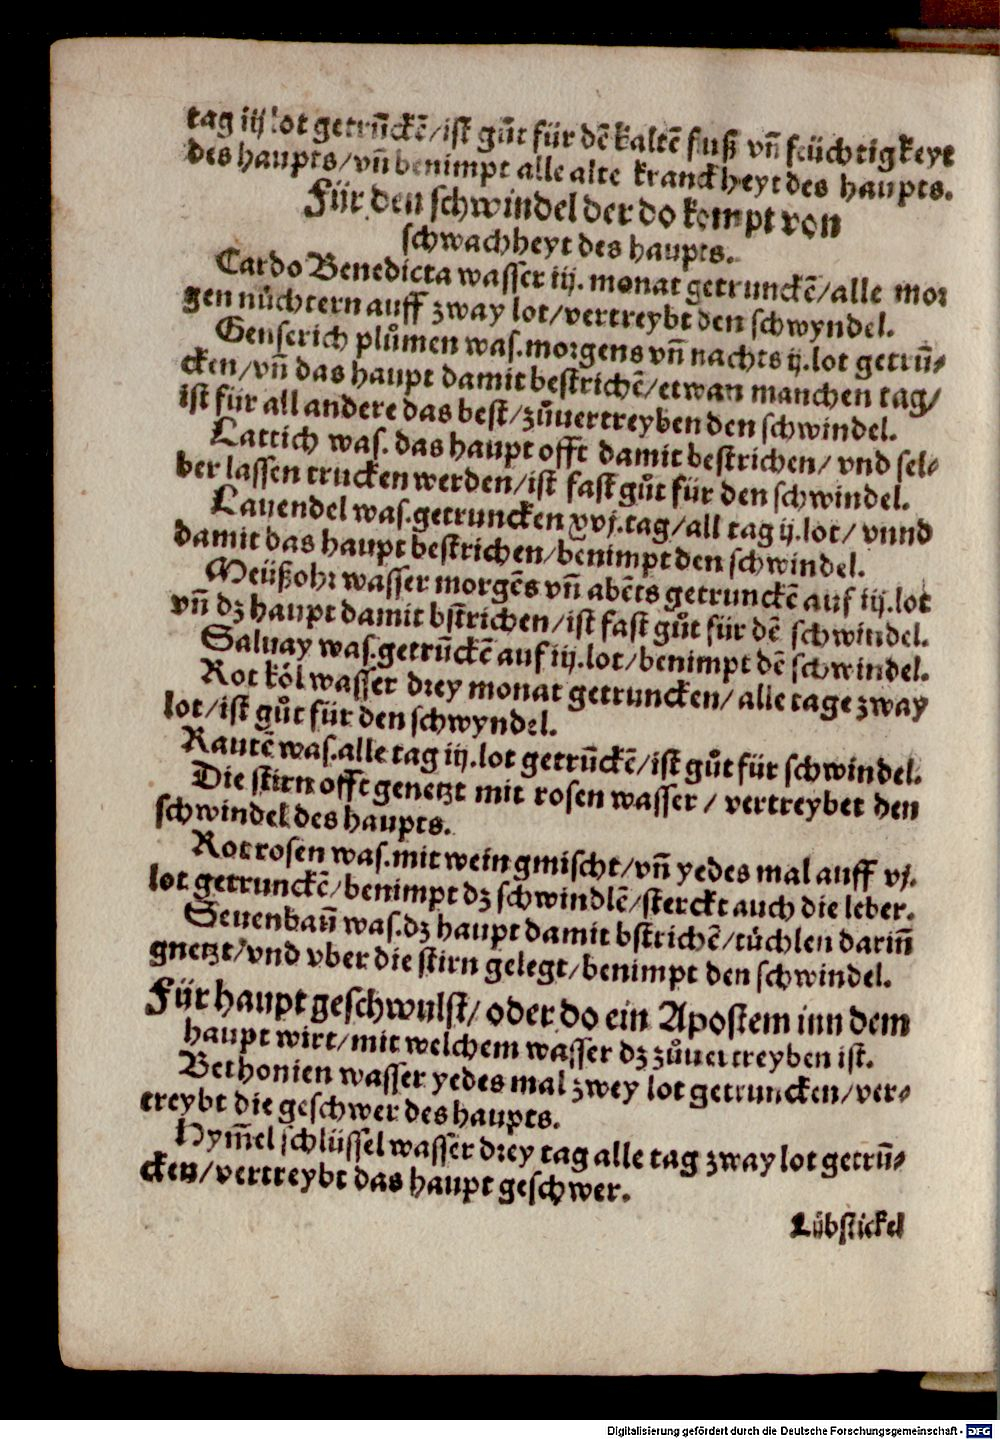 tag iij lot getrũckẽ/ist gůt für dẽ kaltẽ fluß vñ feüchtigkeyt
des haupts/vñ benimpt alle alte kranckheyt des haupts.
Für den schwindel der do kompt von
schwachheyt des haupts.
Cardo Benedicta wasser iij. monat getrunckẽ/alle mor
gen nůchtern auff zway lot/vertreybt den schwyndel.
Genserich plůmen was. morgens vñ nachts ij. lot getrũ-
cken/vñ das haupt damit bestrichẽ/etwan manchen tag/
ist für all andere das best/zůuertreyben den schwindel.
Lattich was. das haupt offt damit bestrichen/ vnd sel-
ber lassen trucken werden/ist fast gůt für den schwindel.
Lauendel was. getruncken xvj. tag/all tag ij. lot/ vnnd
damit das haupt bestrichen/benimpt den schwindel.
Meüßohr wasser morgẽs vñ abẽts getrunckẽ auf iij. lot
vñ dz haupt damit bstrichen/ist fast gůt für dẽ schwindel.
Saluay was. getrũckẽ auf iij. lot/benimpt dẽ schwindel.
Rot köl wasser drey monat getruncken/ alle tage zway
lot/ist gůt für den schwyndel.
Rautẽ was. alle tag iij. lot getrũckẽ/ist gůt für schwindel.
Die stirn offt genetzt mit rosen wasser / vertreybet den
schwindel des haupts.
Rot rosen was. mit wein gmischt/vñ yedes mal auff vj.
lot getrunckẽ/benimpt dz schwindlẽ/sterckt auch die leber.
Seuenbaũ was. dz haupt damit bstrichẽ/tůchlen dariñ
gnetzt/vnd vber die stirn gelegt/benimpt den schwindel.
Für haupt geschwulst/ oder do ein Apostem inn dem
haupt wirt/mit welchem wasser dz zůuertreyben ist.
Bethonien wasser yedes mal zwey lot getruncken/ver-
treybt die geschwer des haupts.
Hym̃el schlüssel wasser drey tag alle tag zway lot getrũ-
cken/vertreybt das haupt geschwer.
Lübstickel
Digitalisierung gefördert durch die Deutsche Forschungsgemeinschaft - DFG